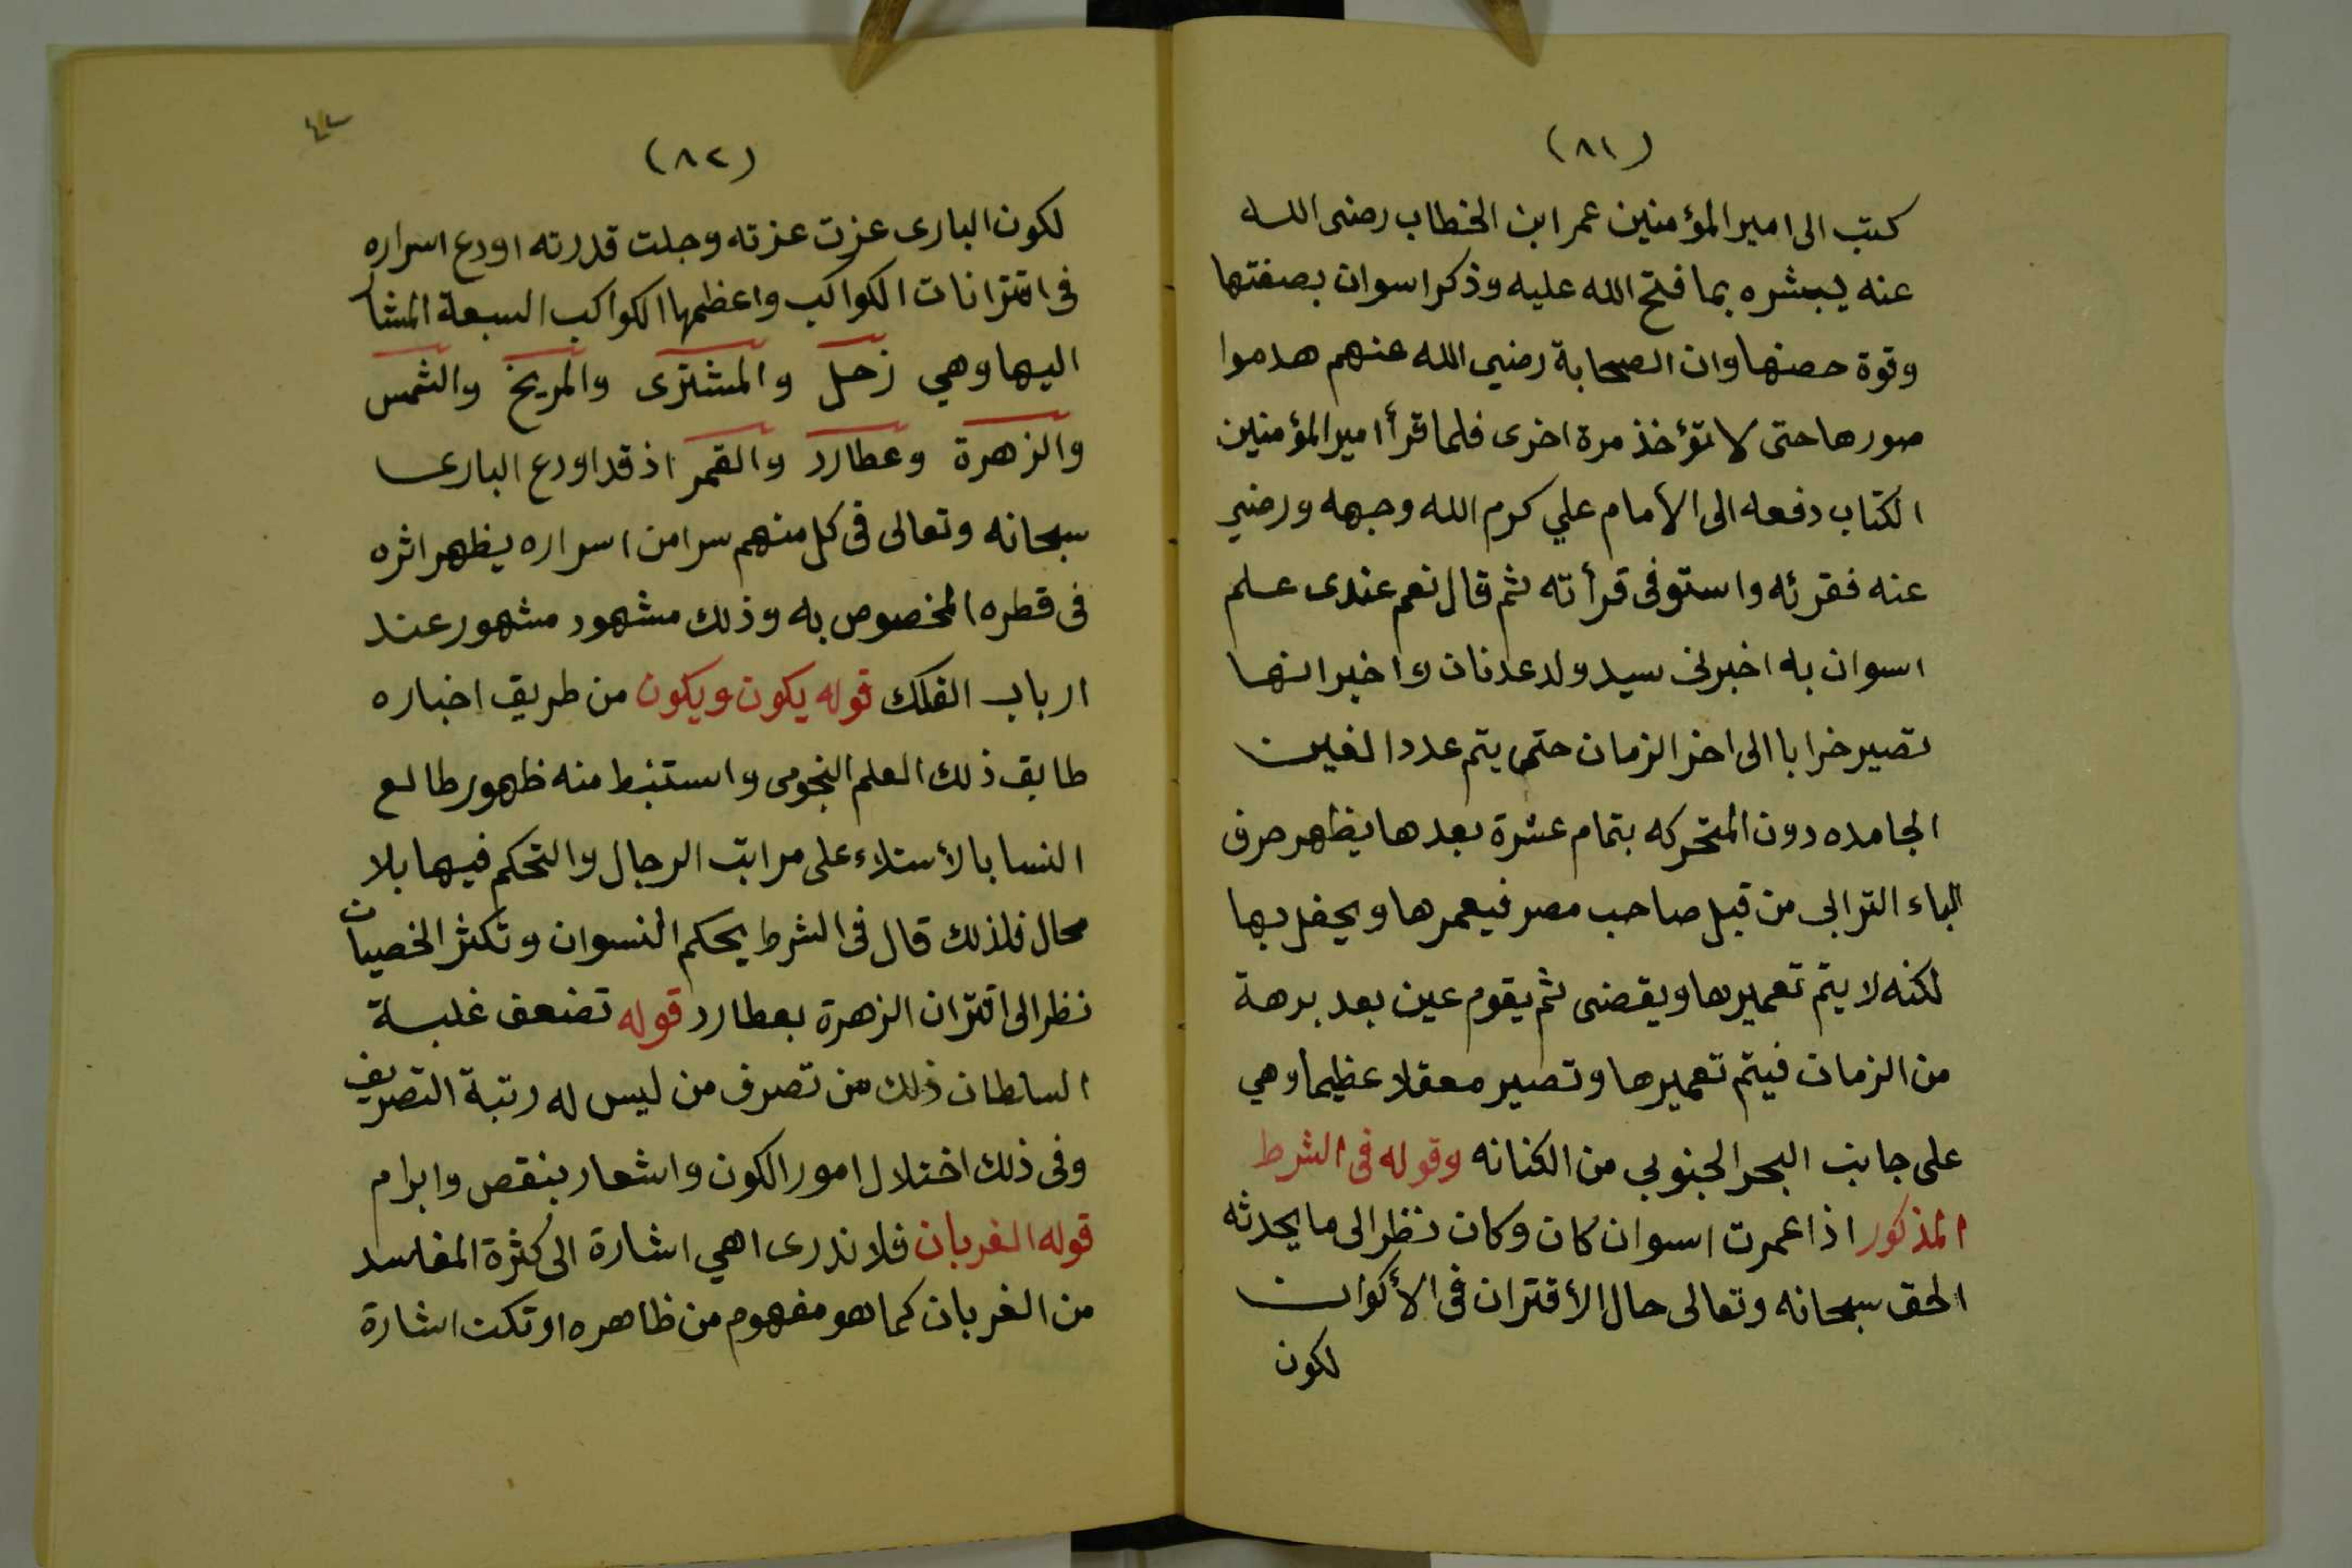 (٨١)
كتب الى امير المؤمنين عمر ابن الخطاب رضى الله
عنه يبشره بما فتح الله عليه وذكر اسوان بصفتها
وقوة حصنها وان الصحابة رضي الله عنهم هدموا
صورها حتى لا تؤخذ مرة اخرى فلما قرأ امير المؤمنين
الكتاب دفعه الى الأمام علي كرم الله وجهه ورضي
عنه فقرئه واستوفى قرأته ثم قال نعم عندى علم
اسوان به اخبرنى سيد ولد عدنان واخبر انها
تصير خرابا الى اخر الزمان حتى يتم عدد الغين
الجامده دون المتحركه بتمام عشرة بعدها يظهر حرف
الباء الترابى من قبل صاحب مصر فيعمرها ويحفل بها
لكنه لا يتم تعميرها ويقضى ثم يقوم عين بعد برهة
من الزمان فيتم تعميرها وتصير معقلا عظيما وهي
على جانب البحر الجنوبي من الكنانه وقوله فى الشرط
المذكور اذا عمرت اسوان كان وكان نظر الى ما يحدثه
الحق سبحانه وتعالى حال الأقتران فى الأكوان
لكون
(٨٢)
لكون البارى عزت عزته وجلت قدرته اودع اسراره
فى اقترانات الكواكب واعظمها الكواكب السبعة المشا
اليها وهي زحل والمشترى والمريخ والشمس
والزهرة وعطارد والقمر اذ قد اودع البارى
سبحانه وتعالى فى كل منهم سرا من اسراره يظهر اثره
فى قطره المخصوص به وذلك مشهود مشهور عند
ارباب الفلك قوله يكون ويكون من طريق اخباره
طابق ذلك العلم النجومى واستنبط منه ظهور طالع
النسا بالأستلاء على مراتب الرجال والتحكم فيها بلا
محال فلذلك قال فى الشرط يحكم النسوان وتكثر الخصيات
نظر الى اقتران الزهرة بعطارد قوله تضعف غلبة
السلطان ذلك من تصرف من ليس له رتبة التصريف
وفى ذلك اختلال امور الكون واشعار بنقص وابرام
قوله الغربان فلا ندرى اهي اشارة الى كثرة المفاسد
من الغربان كما هو مفهوم من ظاهره او تكت اشارة